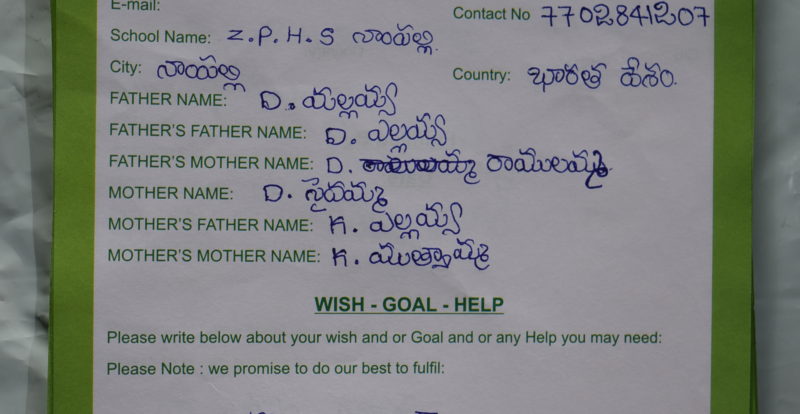 E-mail:
Contact No 7702841207
School Name: Z.P.H.S నాంపల్లి.
City: నాంపల్లి
Country: భారత దేశం.
FATHER NAME: D. యల్లయ్య
FATHER'S FATHER NAME: D. ఎల్లయ్య
FATHER'S MOTHER NAME: D. రాములమ్మ.
MOTHER NAME: D. సైదమ్మ
MOTHER'S FATHER NAME: K. ఎల్లయ్య
MOTHER'S MOTHER NAME: K. ముత్యామ్మ
WISH - GOAL - HELP
Please write below about your wish and or Goal and or any Help you may need:
Please Note : we promise to do our best to fulfil: